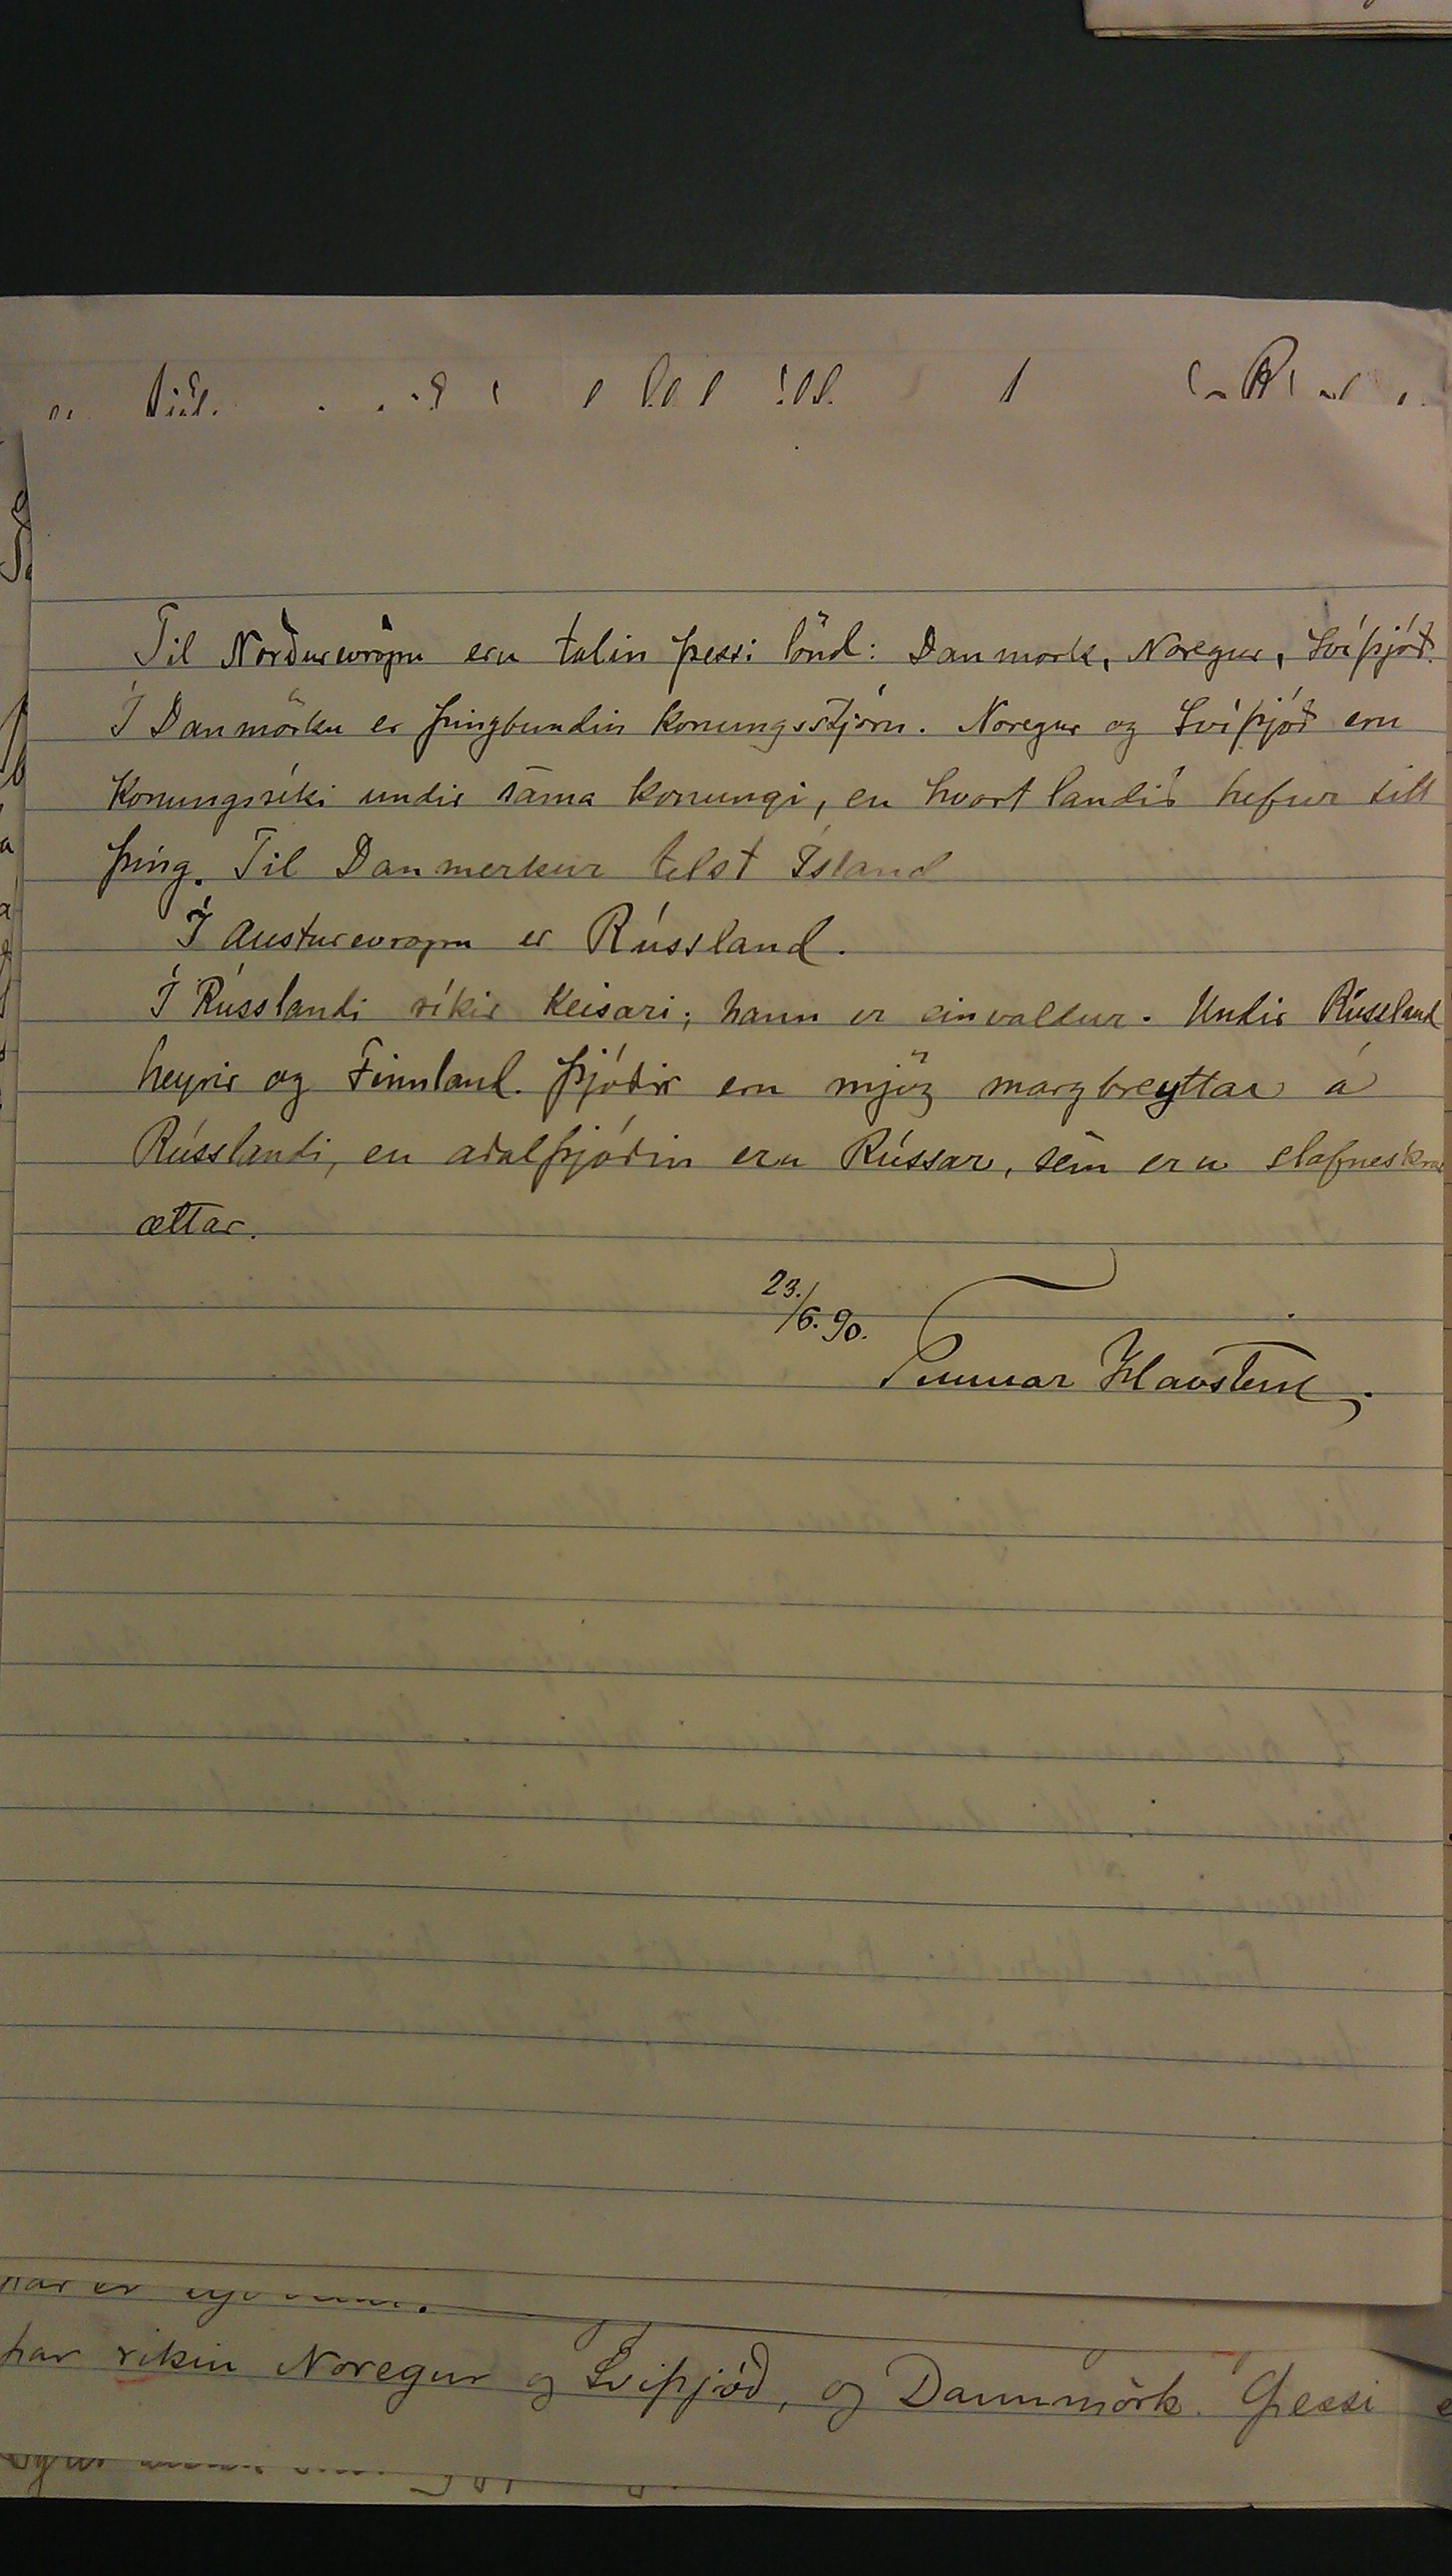 Til Norðurevrópu eru talin þessi lönd: Danmörk, Noregur, Svíþjóð.
Í Danmörku er þingbundin konungsstjórn. Noregur og Svíþjóð eru
Konungsríki undir sama konungi, en hvort landið hefur sitt
þing. Til Danmerkur telst Ísland
Í Austurevropu er Rússland.
Í Rússlandi ríkir Keisari; hann er einvaldur. Undir Rússland
heyrir og Finnland. Þjóðir eru mjög margbreyttar á
Rússlandi, en aðalþjóðin eru Rússar, sem eru slafneskrar
ættar.
23./6. 90.
Gunnar Havstein
þar rikin Noregur og Sviþjóð, og Dannmörk. Þessi